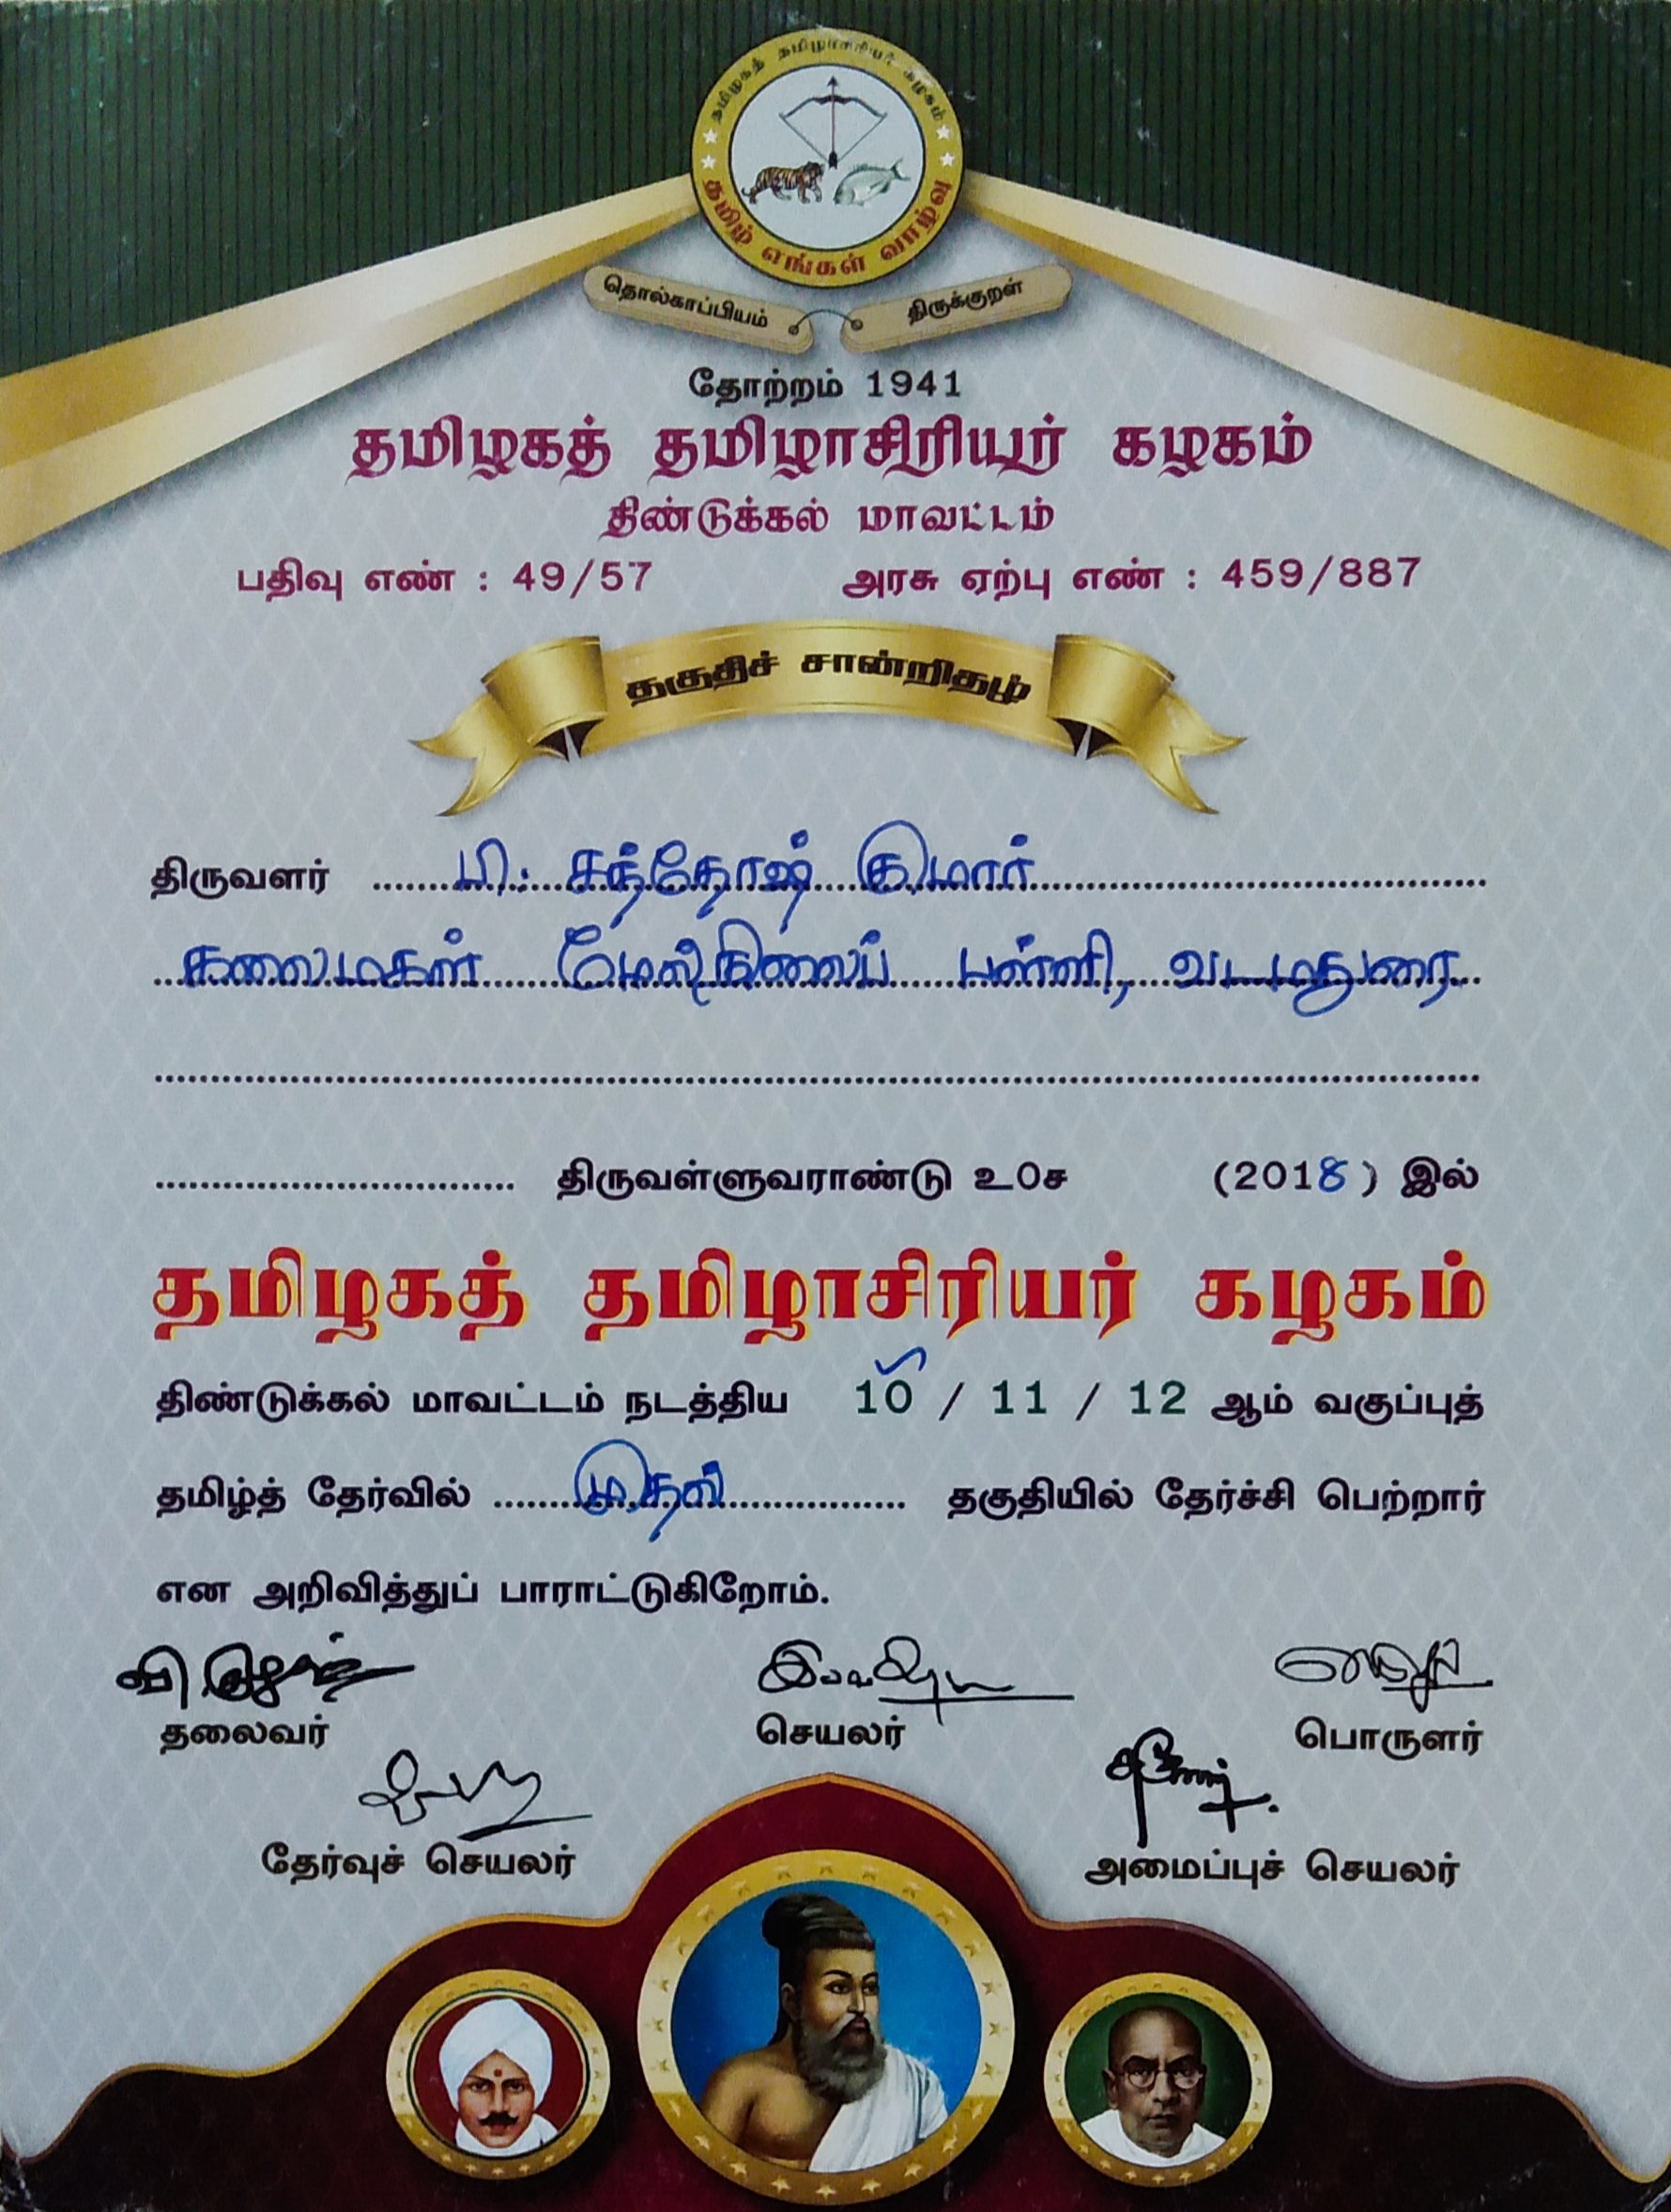 தமிழகத் தமிழாசிரியர் கழகம்
தமிழ் எங்கள் வாழ்வு
தொல்காப்பியம் திருக்குறள்
தோற்றம் 1941
தமிழகத் தமிழாசிரியர் கழகம்
திண்டுக்கல் மாவட்டம்
பதிவு எண் : 49/57 அரசு ஏற்பு எண் : 459/887
தகுதிச் சான்றிதழ்
திருவளர் பி. சந்தோஷ் குமார்
கலைமகள் மேல்நிலைப் பள்ளி, வடமதுரை
திருவள்ளுவராண்டு உ0ச (2018) இல்
தமிழகத் தமிழாசிரியர் கழகம்
திண்டுக்கல் மாவட்டம் நடத்திய 10 / 11 / 12 ஆம் வகுப்புத்
தமிழ்த் தேர்வில் முதல் தகுதியில் தேர்ச்சி பெற்றார்
என அறிவித்துப் பாராட்டுகிறோம்.
தலைவர் செயலர் பொருளர்
தேர்வுச் செயலர் அமைப்புச் செயலர்